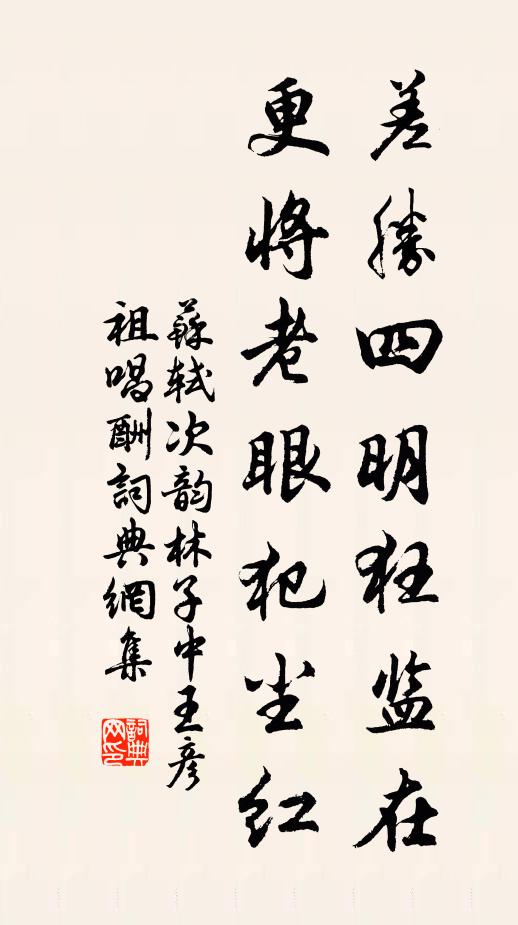 差勝四明狂监在
更将老眼犯尘红
蘇轼次韵林子中王彦
祖唱酬詞典網集
詞典网印